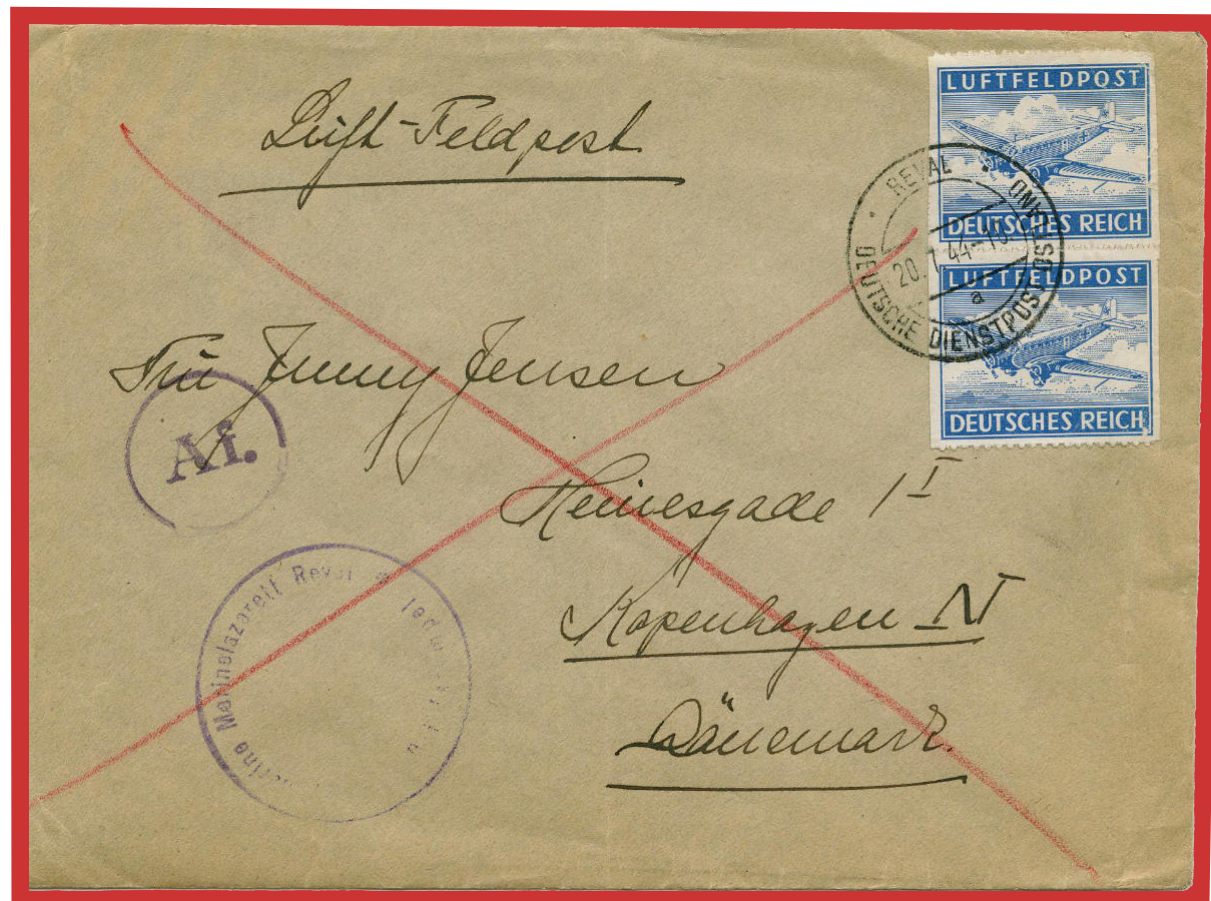 Luft-Feldpost
LUFTFELDPOST
DEUTSCHES REICH
LUFTFELDPOST
DEUTSCHES REICH
REVAL
20.7.44-10
a
DEUTSCHE DIENSTPOST OSTLAND
Fru Jenny Jensen
Af.
Heinesgade 1 I
Kopenhagen N
Dänemark.
Marinelazarett Reval